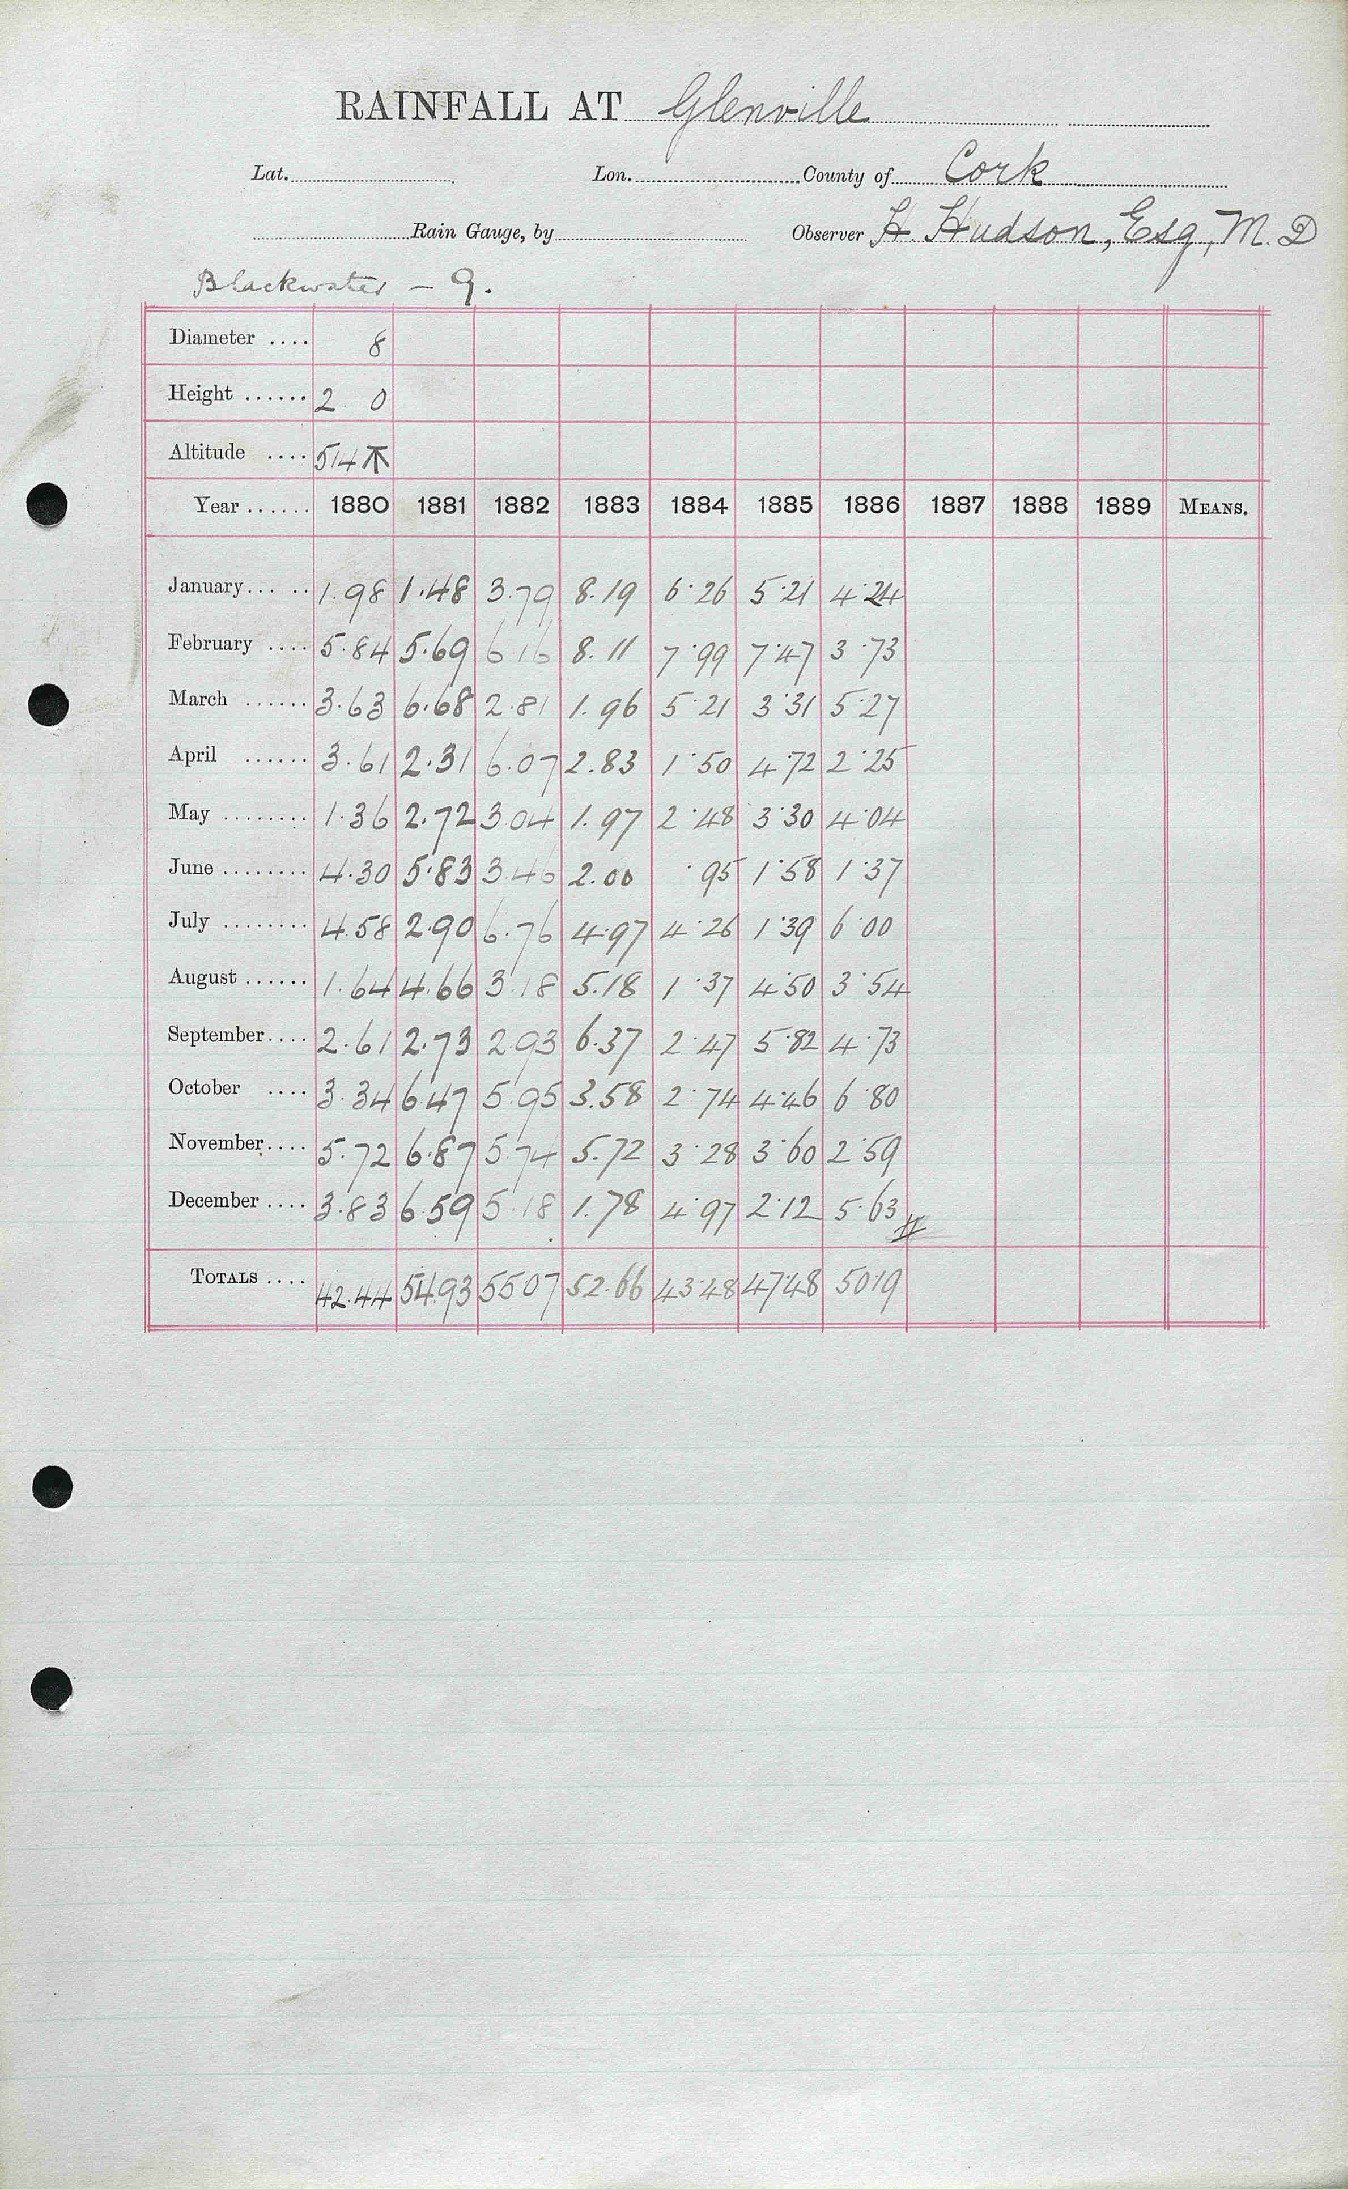 RAINFALL AT Glenville
Lat. Lon. County of Cork
Rain Gauge, by Observer H Hudson, Esq, M.D
Blackwater - 9.
Diameter .... 8
Height ...... 2 0
Altitude .... 514
Year ...... 1880 1881 1882 1883 1884 1885 1886 1887 1888 1889 MEANS.
January... .. 1.98 1.48 3.79 8.19 6.26 5.21 4.24
February .... 5.84 5.69 6.16 8.11 7.99 7.47 3.73
March ...... 3.63 6.68 2.81 1.96 5.21 3.31 5.27
April ...... 3.61 2.31 6.07 2.83 1.50 4.72 2.25
May ........ 1.36 2.72 3.04 1.97 2.48 3.30 4.04
June ........ 4.30 5.83 3.46 2.00 .95 1.58 1.37
July ........ 4.58 2.90 6.76 4.97 4.26 1.39 6.00
August ...... 1.64 4.66 3.18 5.18 1.37 4.50 3.54
September.... 2.61 2.73 2.93 6.37 2.47 5.82 4.73
October .... 3.34 6.47 5.95 3.58 2.74 4.46 6.80
November.... 5.72 6.87 5.74 5.72 3.28 3.60 2.59
December .... 3.83 6.59 5.18 1.78 4.97 2.12 5.63
TOTALS .... 42.44 54.93 55 07 52.66 43.48 47.48 50.19